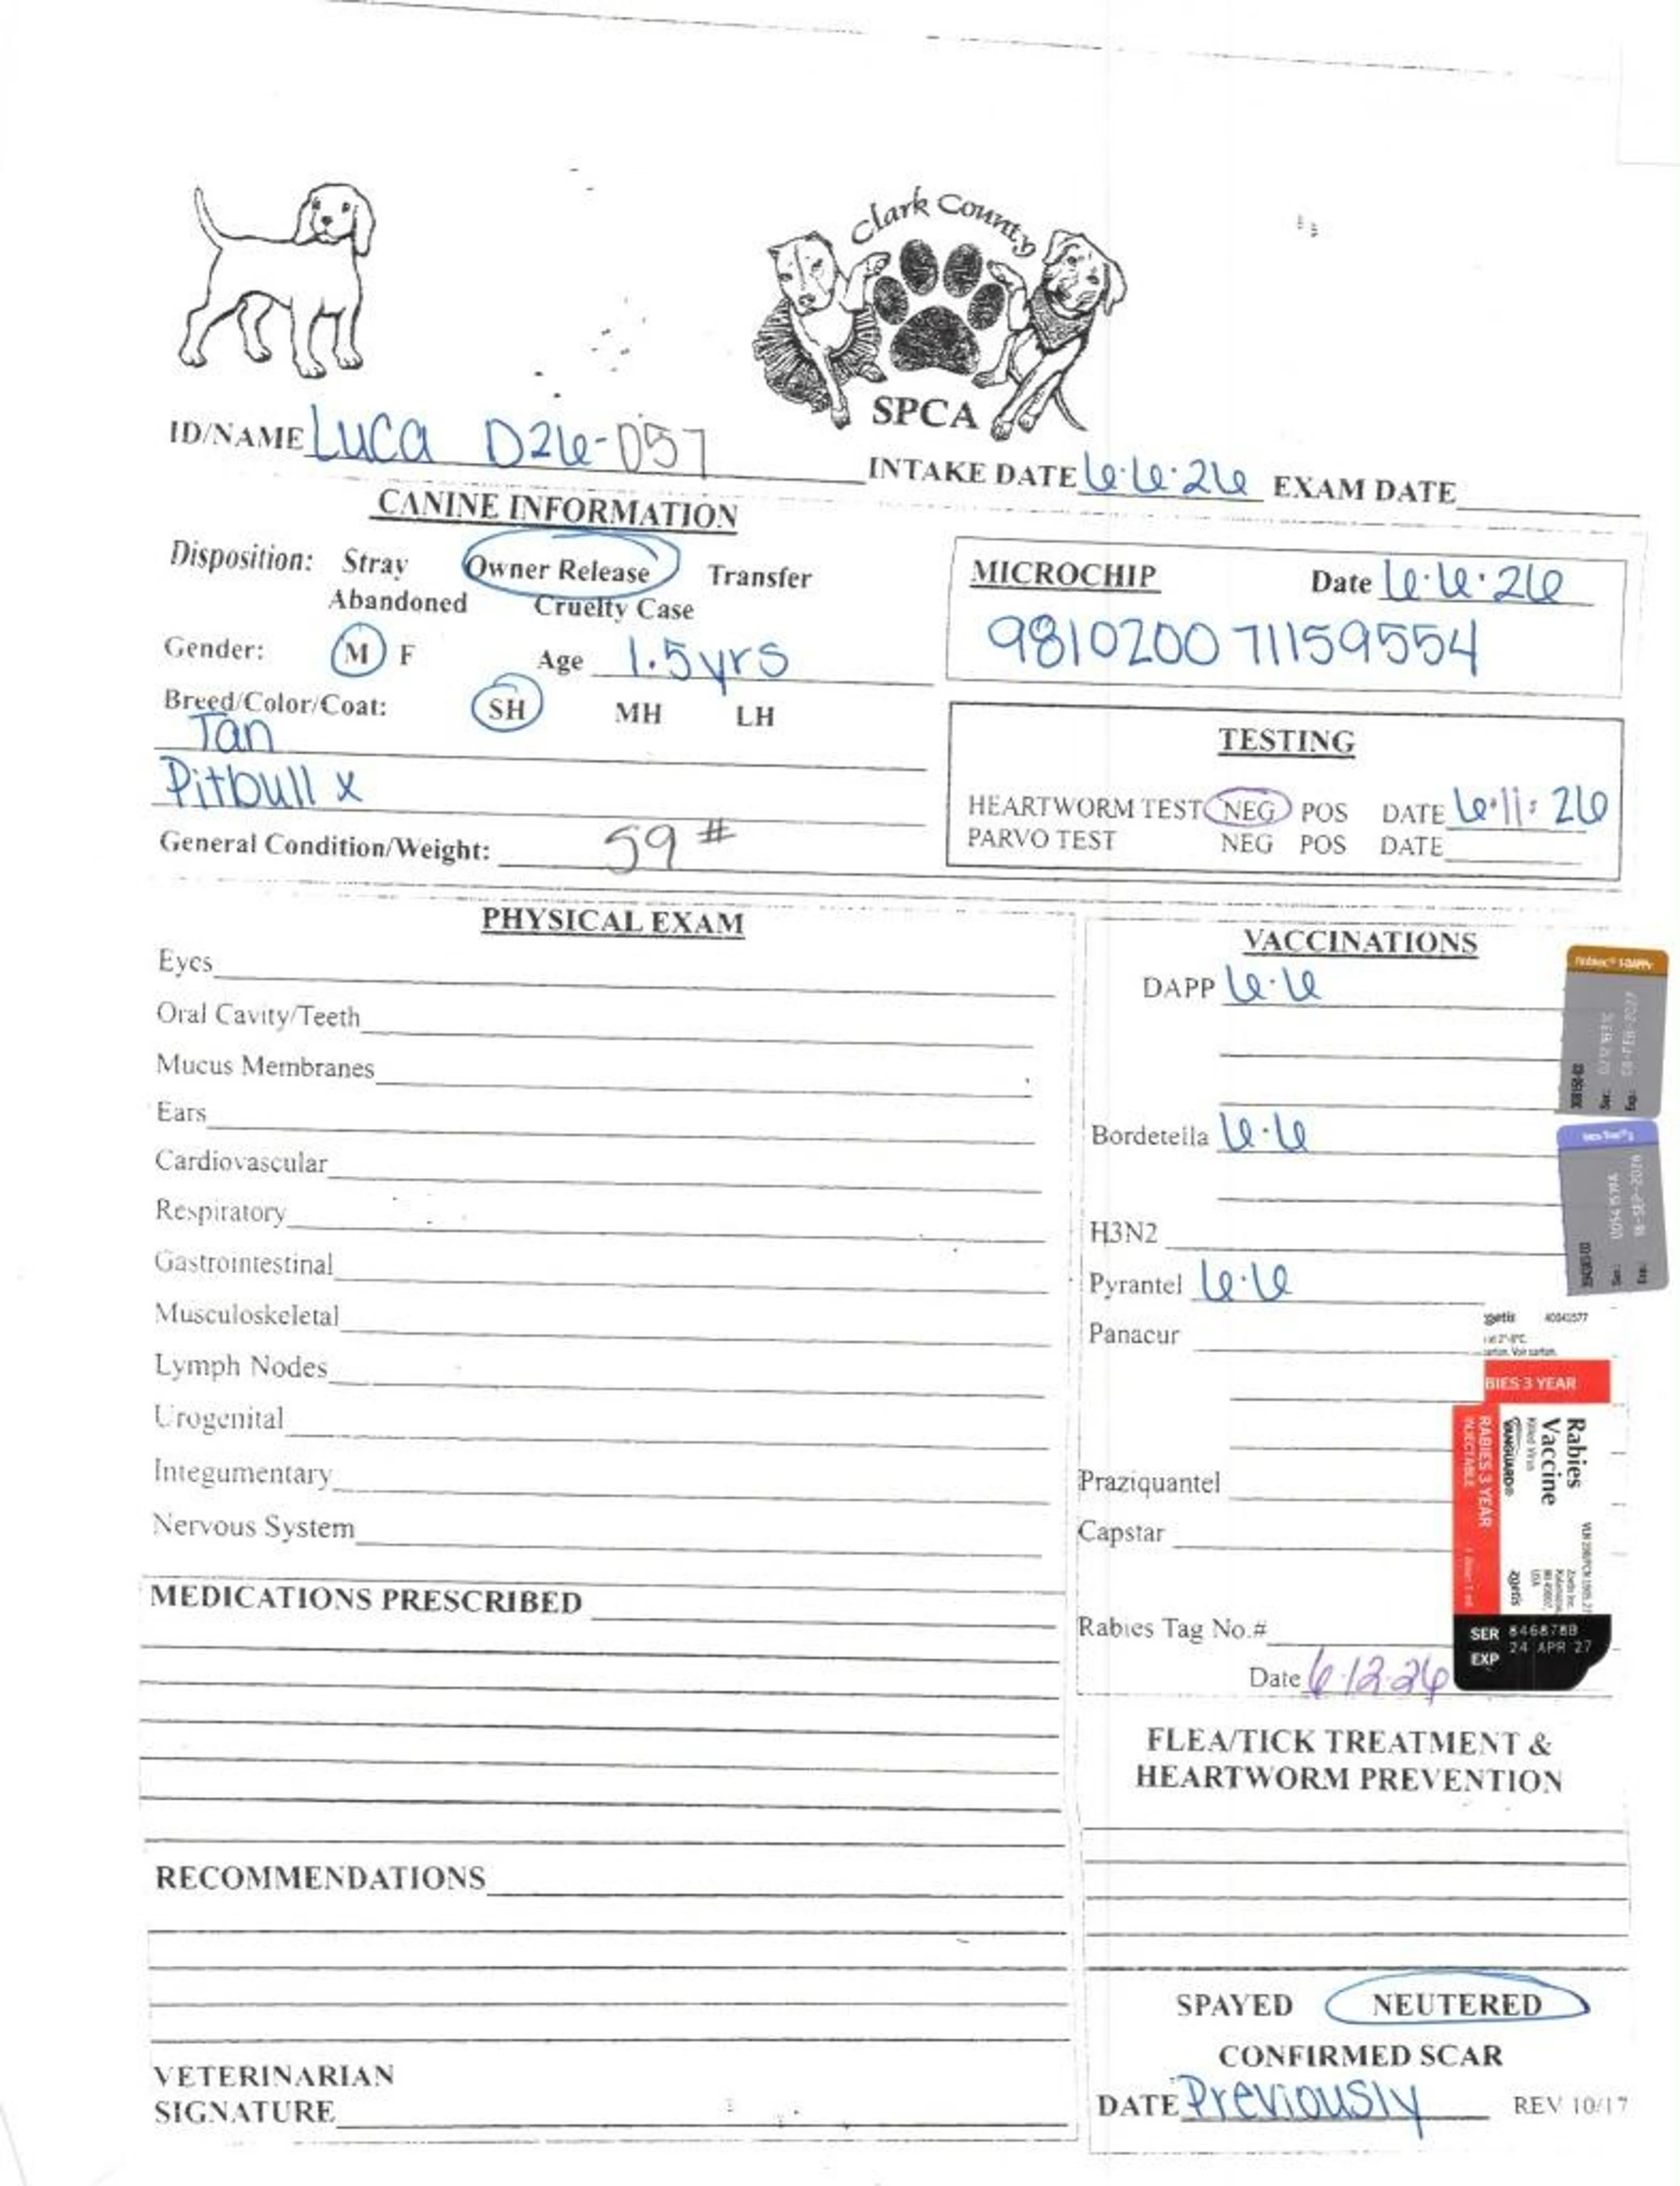 Clark County
SPCA
ID/NAME Luca D26-057
INTAKE DATE 6.6.26 EXAM DATE
CANINE INFORMATION
Disposition: Stray Owner Release Transfer
Abandoned Cruelty Case
Gender: M F Age 1.5yrs
Breed/Color/Coat: SH MH LH
Tan
Pitbull x
General Condition/Weight: 59 #
MICROCHIP Date 6.6.26
981020071159554
TESTING
HEARTWORM TEST NEG POS DATE 6.11.26
PARVO TEST NEG POS DATE
PHYSICAL EXAM
Eyes
Oral Cavity/Teeth
Mucus Membranes
Ears
Cardiovascular
Respiratory
Gastrointestinal
Musculoskeletal
Lymph Nodes
Urogenital
Integumentary
Nervous System
MEDICATIONS PRESCRIBED
RECOMMENDATIONS
VETERINARIAN
SIGNATURE
VACCINATIONS
DAPP 6.6
Bordetella 6.6
H3N2
Pyrantel 6.6
Panacur
Praziquantel
Capstar
Rabies Tag No.#
Date 6.12.26
Ser.:
Exp.: 08-FEB-2027
Ser.:
Exp.: 16-SEP-2026
BIES 3 YEAR
Rabies
Vaccine
Killed Virus
VANGUARD
RABIES 3 YEAR
INJECTABLE
zoetis
SER 846878B
EXP 24 APR 27
FLEA/TICK TREATMENT &
HEARTWORM PREVENTION
SPAYED NEUTERED
CONFIRMED SCAR
DATE Previously REV 10/17